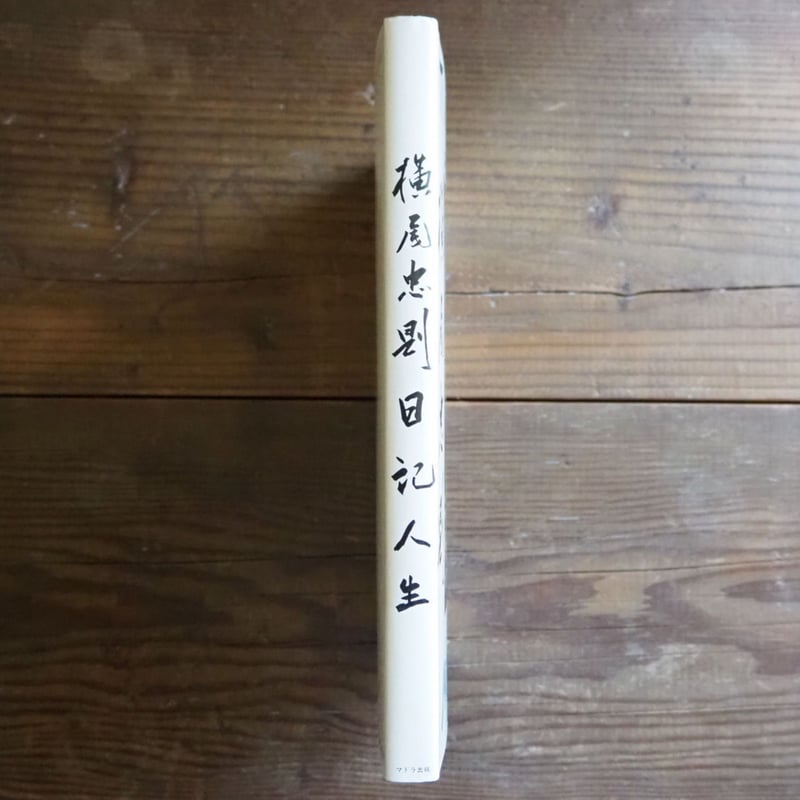 横尾忠則日記人生
マドラ出版